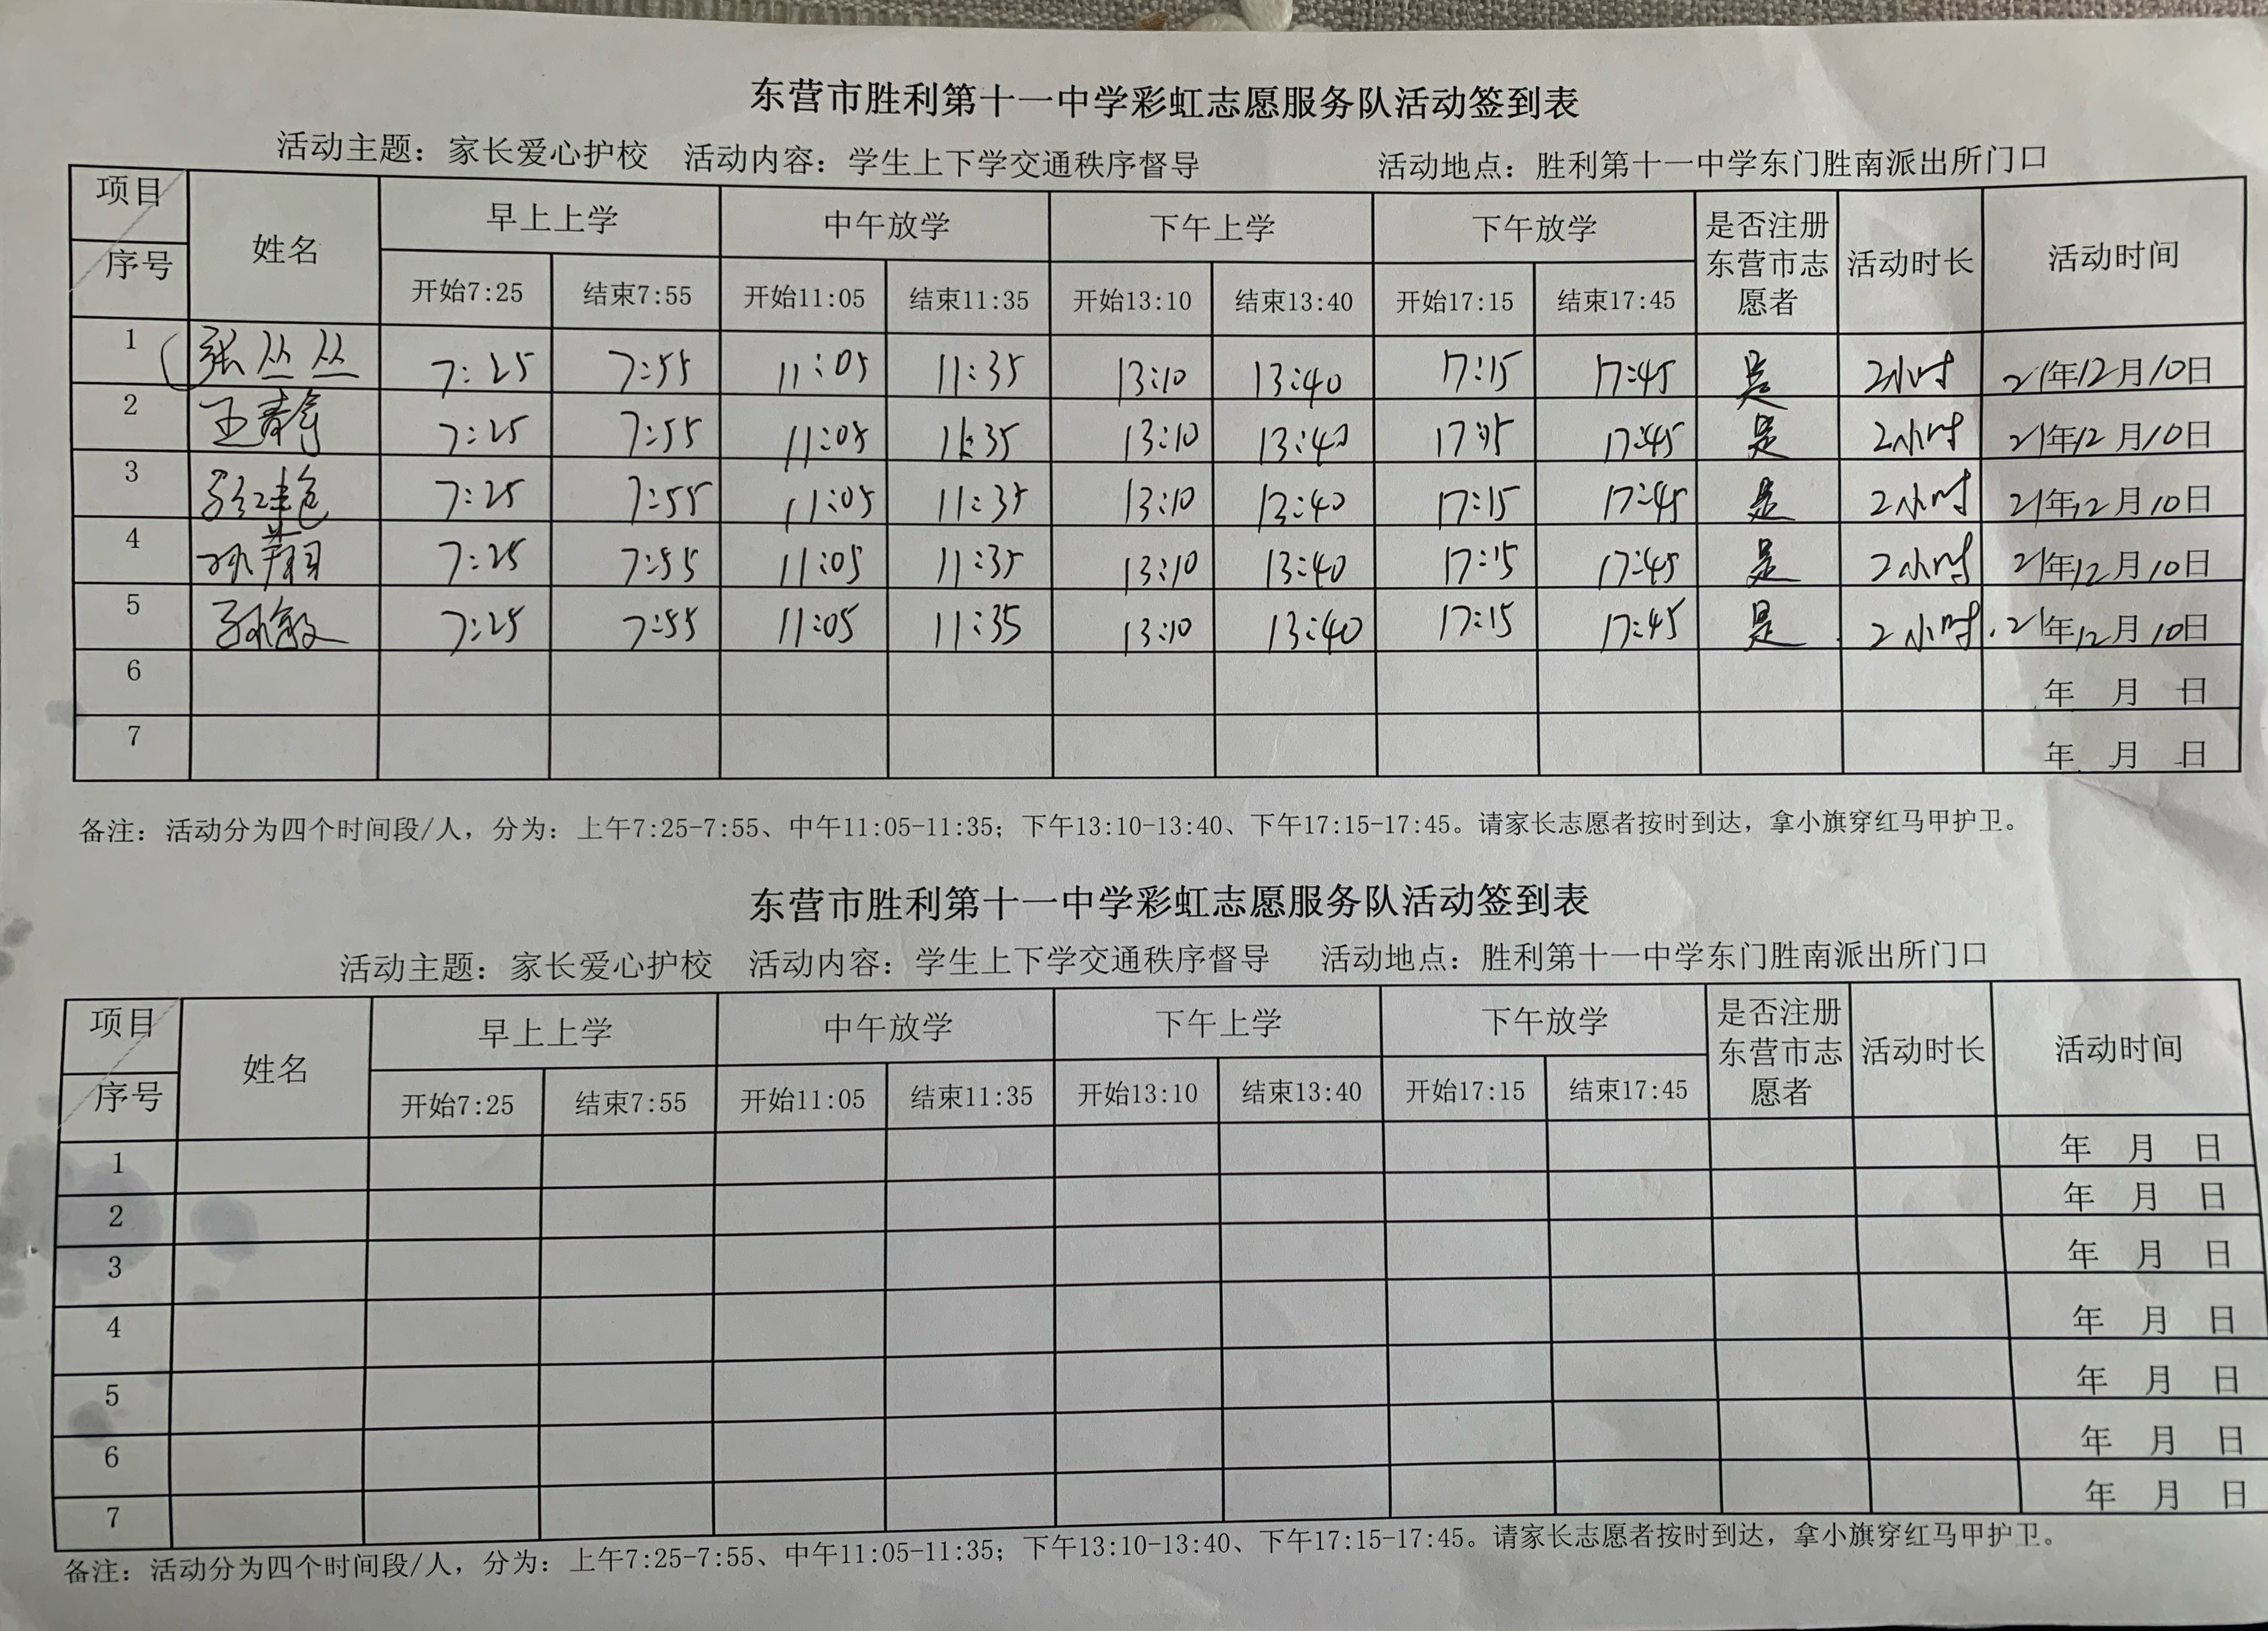 东营市胜利第十一中学彩虹志愿服务队活动签到表
活动主题：家长爱心护校 活动内容：学生上下学交通秩序督导 活动地点：胜利第十一中学东门胜南派出所门口
项目 序号 姓名 早上上学 中午放学 下午上学 下午放学 是否注册东营市志愿者 活动时长 活动时间
开始7:25 结束7:55 开始11:05 结束11:35 开始13:10 结束13:40 开始17:15 结束17:45
1 张丛丛 7:25 7:55 11:05 11:35 13:10 13:40 17:15 17:45 是 2小时 21年12月10日
2 王静 7:25 7:55 11:05 11:35 13:10 13:40 17:15 17:45 是 2小时 21年12月10日
3 7:25 7:55 11:05 11:35 13:10 13:40 17:15 17:45 是 2小时 21年12月10日
4 孙翔 7:25 7:55 11:05 11:35 13:10 13:40 17:15 17:45 是 2小时 21年12月10日
5 孙敏 7:25 7:55 11:05 11:35 13:10 13:40 17:15 17:45 是 2小时 21年12月10日
6 年 月 日
7 年 月 日
备注：活动分为四个时间段/人，分为：上午7:25-7:55、中午11:05-11:35；下午13:10-13:40、下午17:15-17:45。请家长志愿者按时到达，拿小旗穿红马甲护卫。
东营市胜利第十一中学彩虹志愿服务队活动签到表
活动主题：家长爱心护校 活动内容：学生上下学交通秩序督导 活动地点：胜利第十一中学东门胜南派出所门口
项目 序号 姓名 早上上学 中午放学 下午上学 下午放学 是否注册东营市志愿者 活动时长 活动时间
开始7:25 结束7:55 开始11:05 结束11:35 开始13:10 结束13:40 开始17:15 结束17:45
1 年 月 日
2 年 月 日
3 年 月 日
4 年 月 日
5 年 月 日
6 年 月 日
7 年 月 日
备注：活动分为四个时间段/人，分为：上午7:25-7:55、中午11:05-11:35；下午13:10-13:40、下午17:15-17:45。请家长志愿者按时到达，拿小旗穿红马甲护卫。